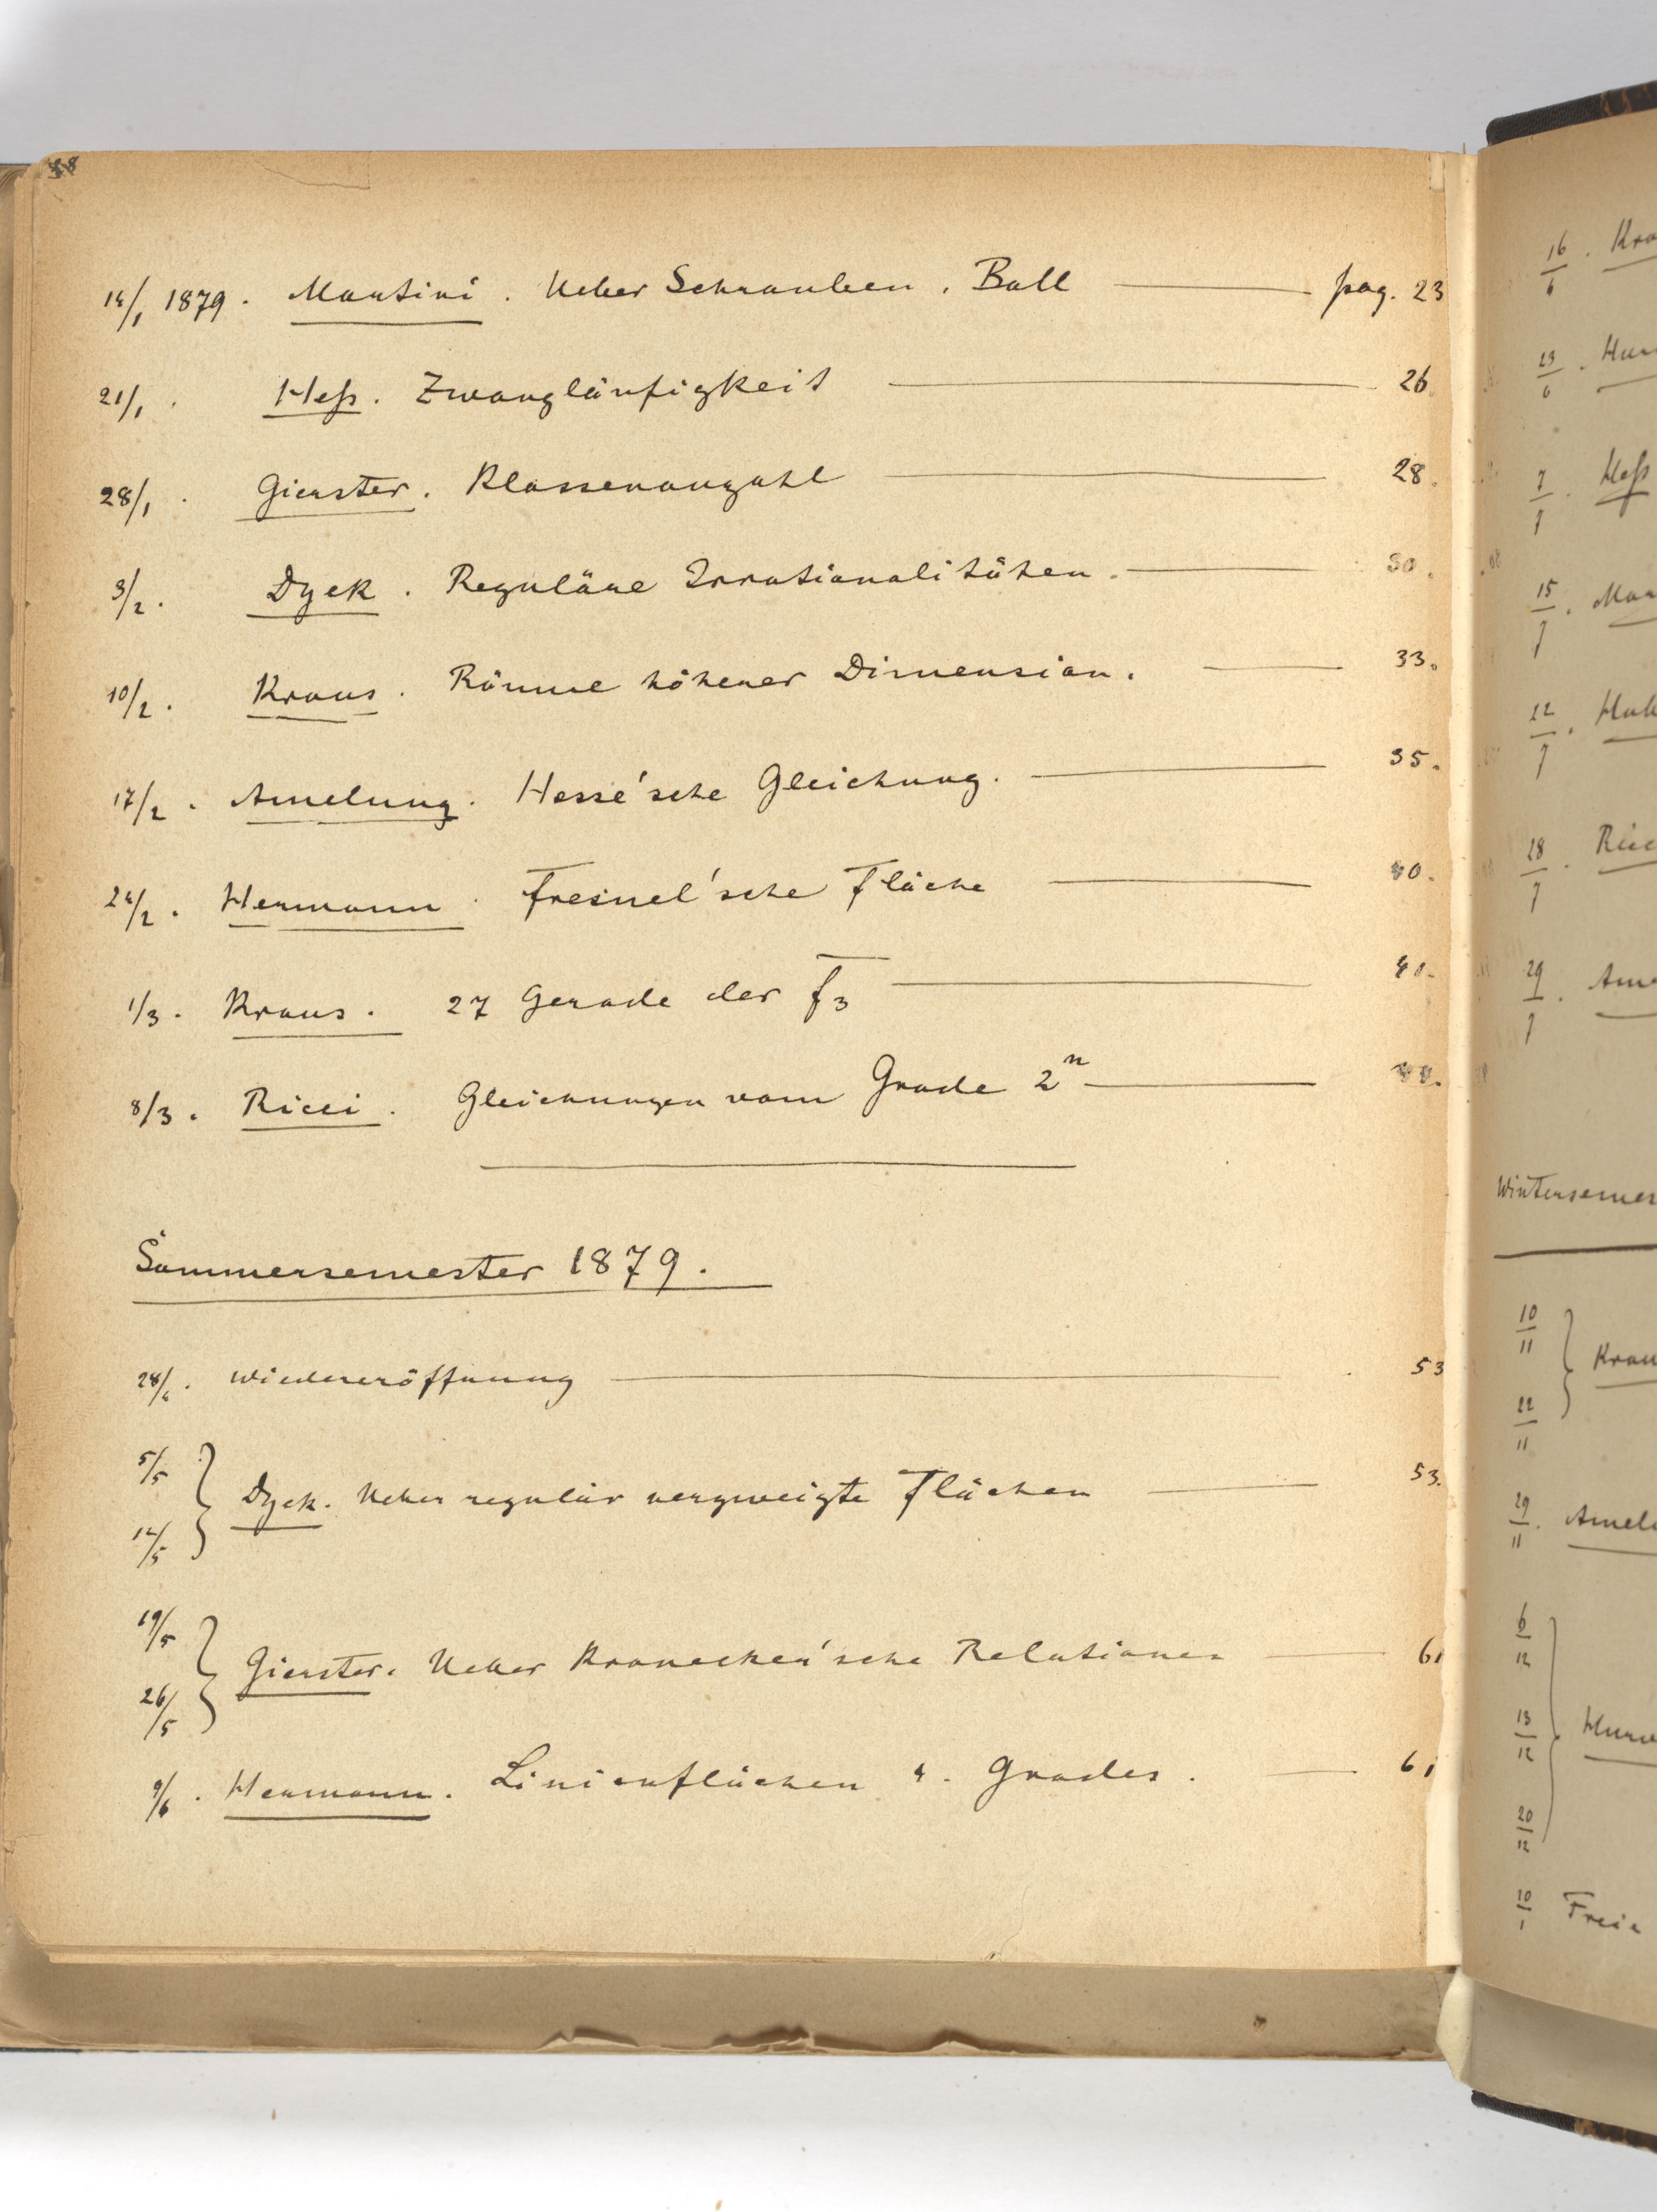 14/1 1879. Martini. Ueber Schrauben. Ball pag. 23
21/1. Heß. Zwangläufigkeit 26.
28/1. Gierster. Klassenanzahl 28.
3/2. Dyck. Reguläre Irrationalitäten. 30.
10/2. Kraus. Räume höherer Dimension. 33.
17/2. Amelung. Hesse'sche Gleichung. 35.
24/2. Hermann. Fresnel'sche Fläche 40.
1/3. Kraus. 27 Gerade der f3 41.
8/3. Ricci. Gleichungen vom Grade 2^n
Sommersemester 1879.
28/4. Wiedereröffnung 53
5/5
12/5
Dyck. Ueber regulär verzweigte Flächen 53.
19/5
26/5
Gierster. Ueber Kronecker'sche Relationen 61
9/6. Hermann. Linienflächen 4. Grades. 61
16/6.
23/6.
7/7. Heß
15/7.
22/7.
28/7.
29/7.
10/11
22/11
29/11.
6/12
13/12
20/12
10/1 Freie